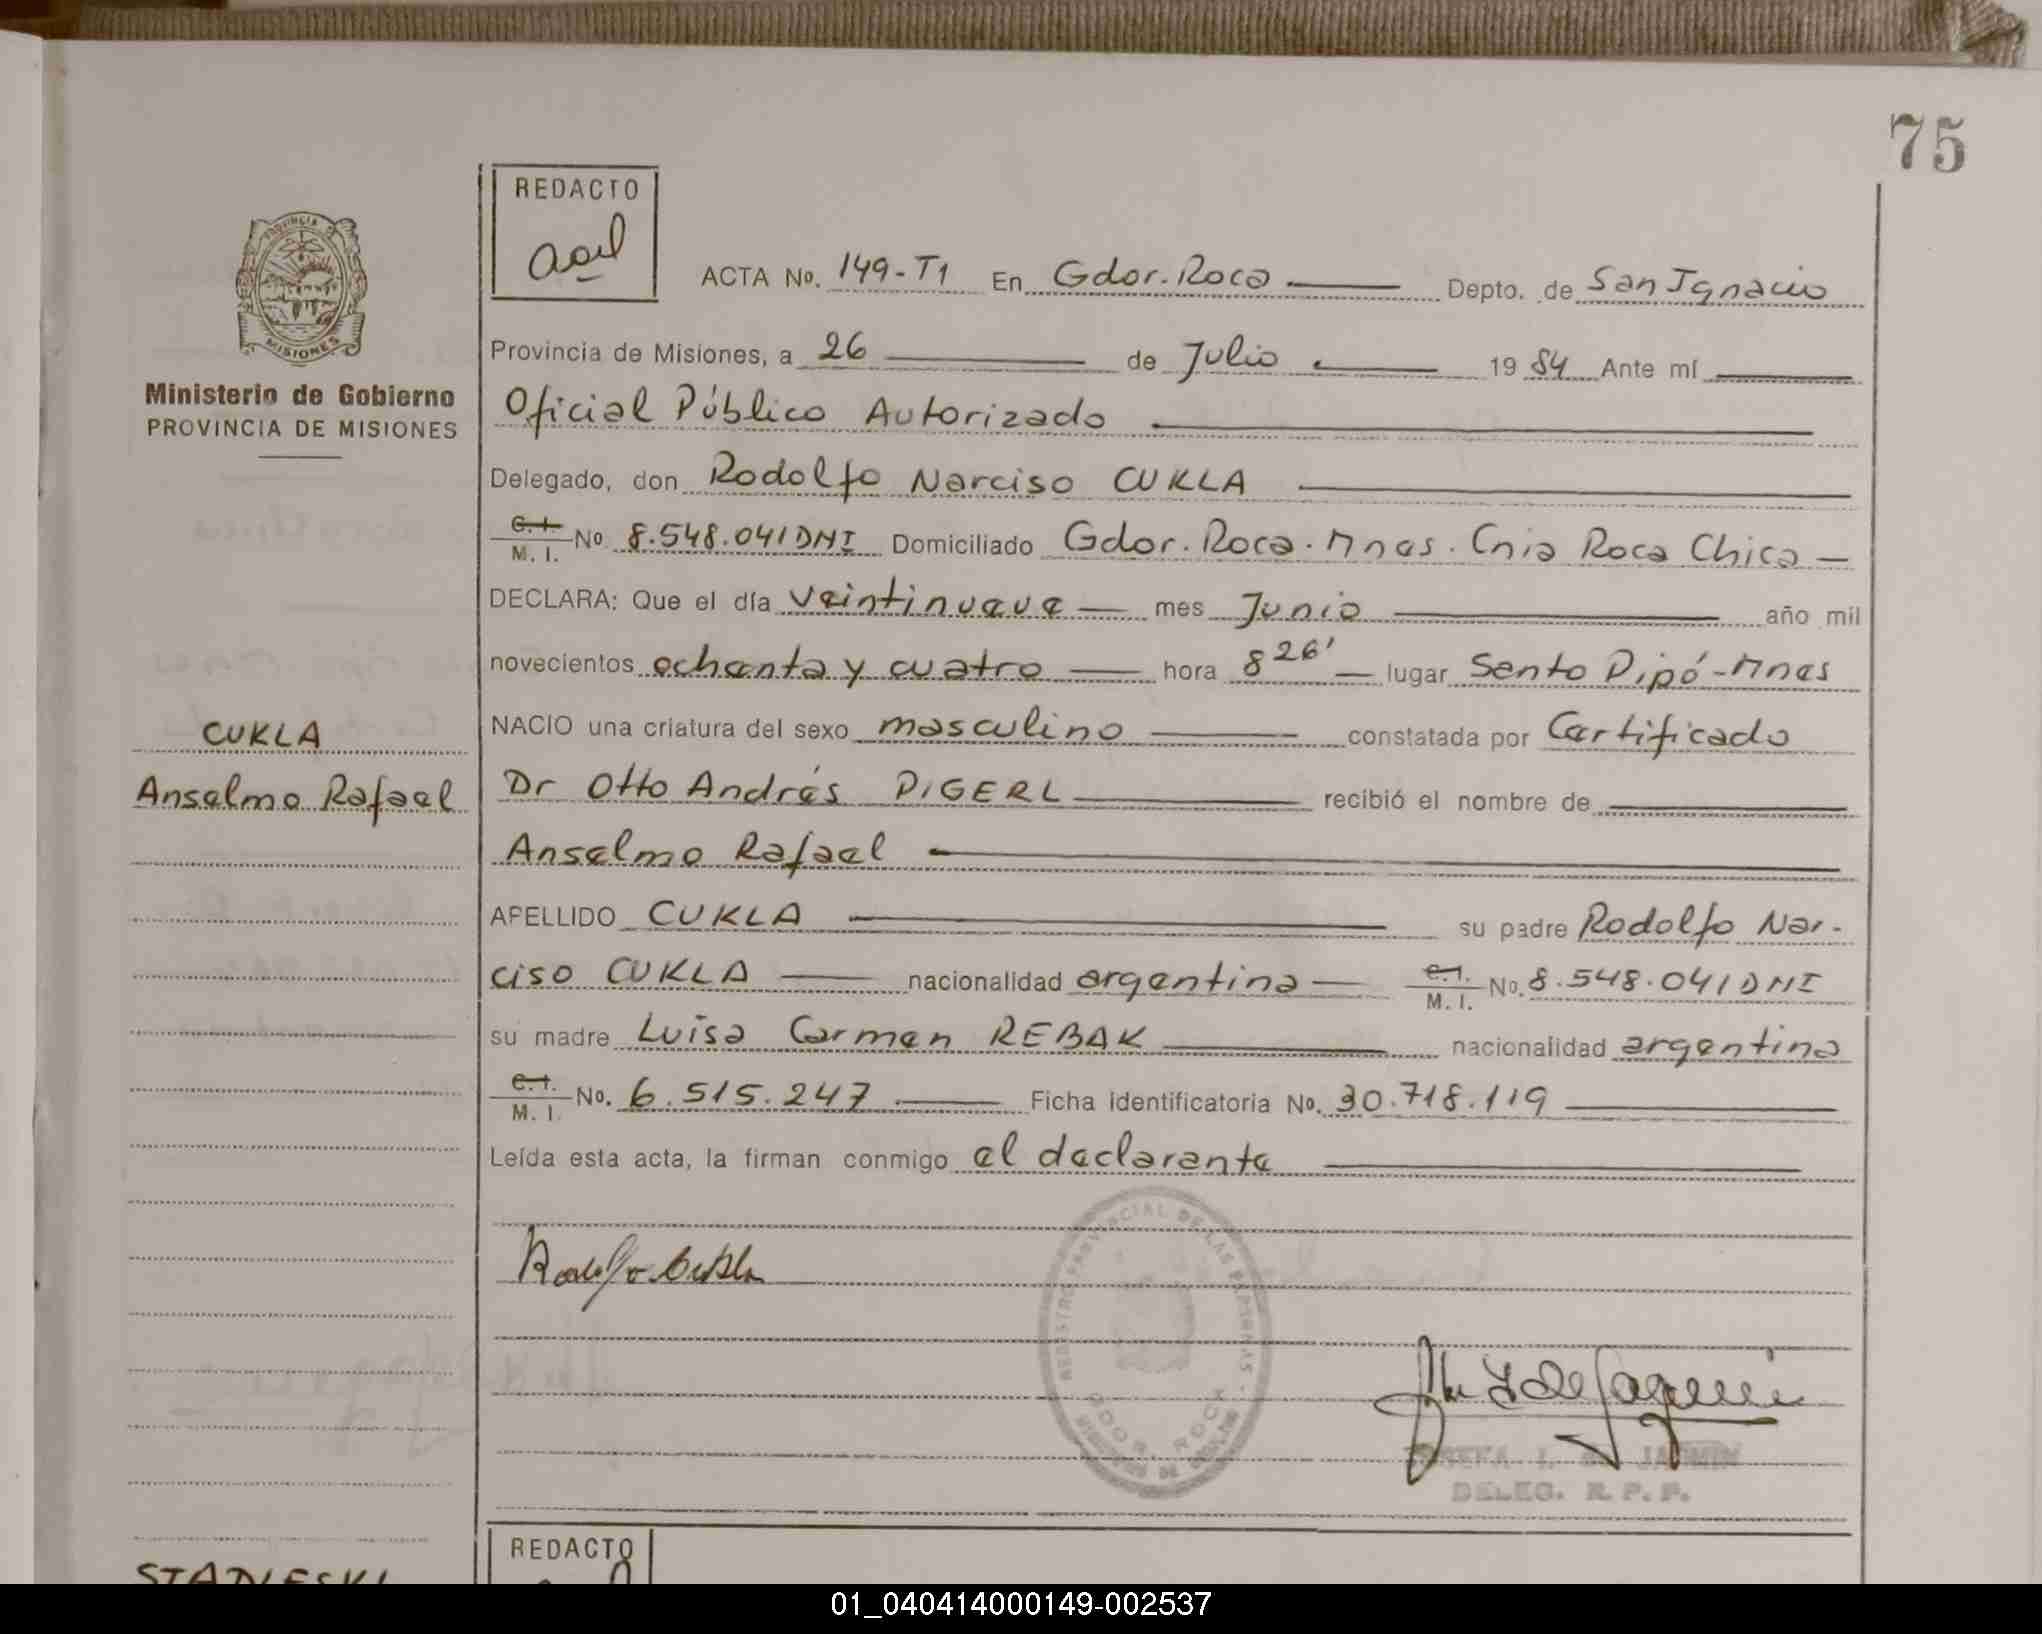 75
REDACTO
PROVINCIA
MISIONES
ACTA No. 149-T1 En Gdor. Roca Depto. de San Ignacio
Provincia de Misiones, a 26 de Julio 1984 Ante mí
Ministerio de Gobierno
PROVINCIA DE MISIONES
Oficial Público Autorizado
Delegado, don Rodolfo Narciso CUKLA
C.I. M. I. No 8.548.041 DNI Domiciliado Gdor. Roca. Mnes. Cnia Roca Chica
DECLARA: Que el día veintinueve mes Junio año mil
novecientos ochenta y cuatro hora 8 26' lugar Santo Pipó-Mnes
NACIO una criatura del sexo masculino constatada por Certificado
CUKLA
Anselmo Rafael
Dr Otto Andrés PIGERL recibió el nombre de
Anselmo Rafael
APELLIDO CUKLA su padre Rodolfo Nar-
ciso CUKLA nacionalidad argentina C.I. M. I. No. 8.548.041 DNI
su madre Luisa Carmen REBAK nacionalidad argentina
C.I. M. I. No. 6.515.247 Ficha identificatoria No. 30.718.119
Leída esta acta, la firman conmigo el declarante
Rodolfo Cukla
REGISTRO PROVINCIAL DE LAS PERSONAS
GDOR. ROCA
DELEG. R. P. P.
REDACTO
01_040414000149-002537